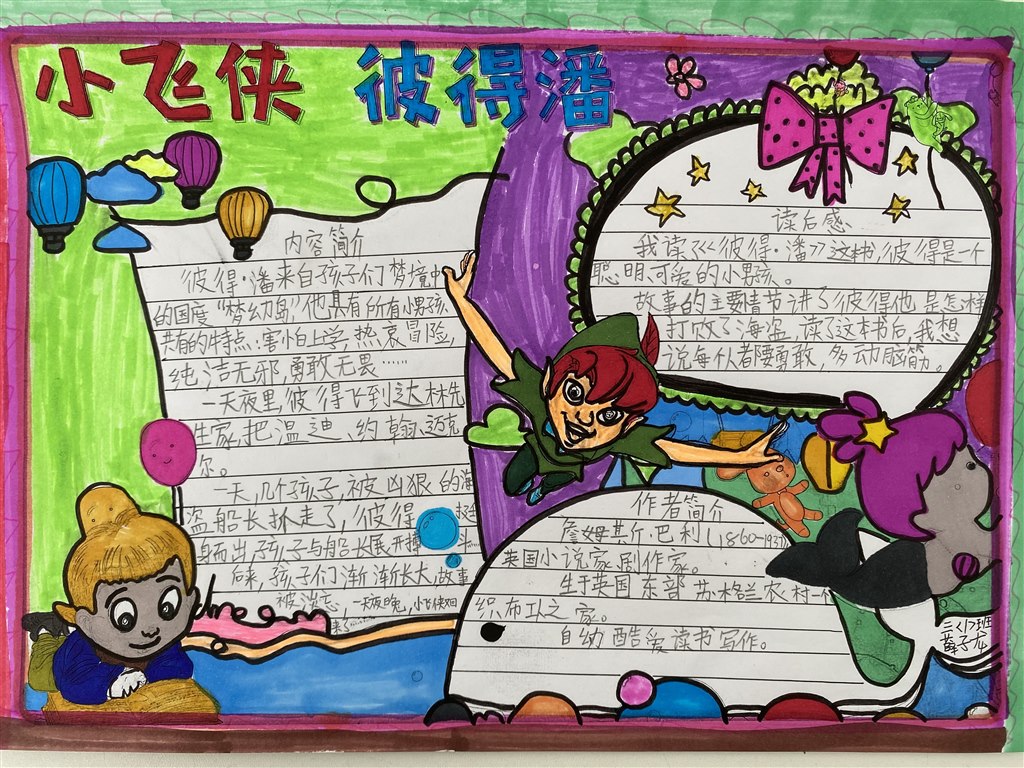 小飞侠 彼得潘
内容简介
彼得·潘来自孩子们梦境中
的国度“梦幻岛”他具有所有小男孩
共有的特点:害怕上学,热衷冒险,
纯洁无邪,勇敢无畏……
一天夜里,彼得飞到达林先
生家,把温迪、约翰、迈克
尔。
一天,几个孩子,被凶狠的海
盗船长抓走了,彼得 挺
身而出,孩子与船长展开
后来,孩子们渐渐长大,故事
被淡忘,一天夜晚,小飞侠
来了……
读后感
我读了《彼得·潘》这书,彼得是一个
聪明、可爱的小男孩。
故事的主要情节讲了彼得他是怎样
打败了海盗,读了这本书后,我想
说每个人都要勇敢,多动脑筋。
作者简介
詹姆斯·巴利(1860-1937)
英国小说家、剧作家。
生于英国东部苏格兰农村一个
织布工人之家。
自幼酷爱读书写作。
三〈1〉班
薛子龙